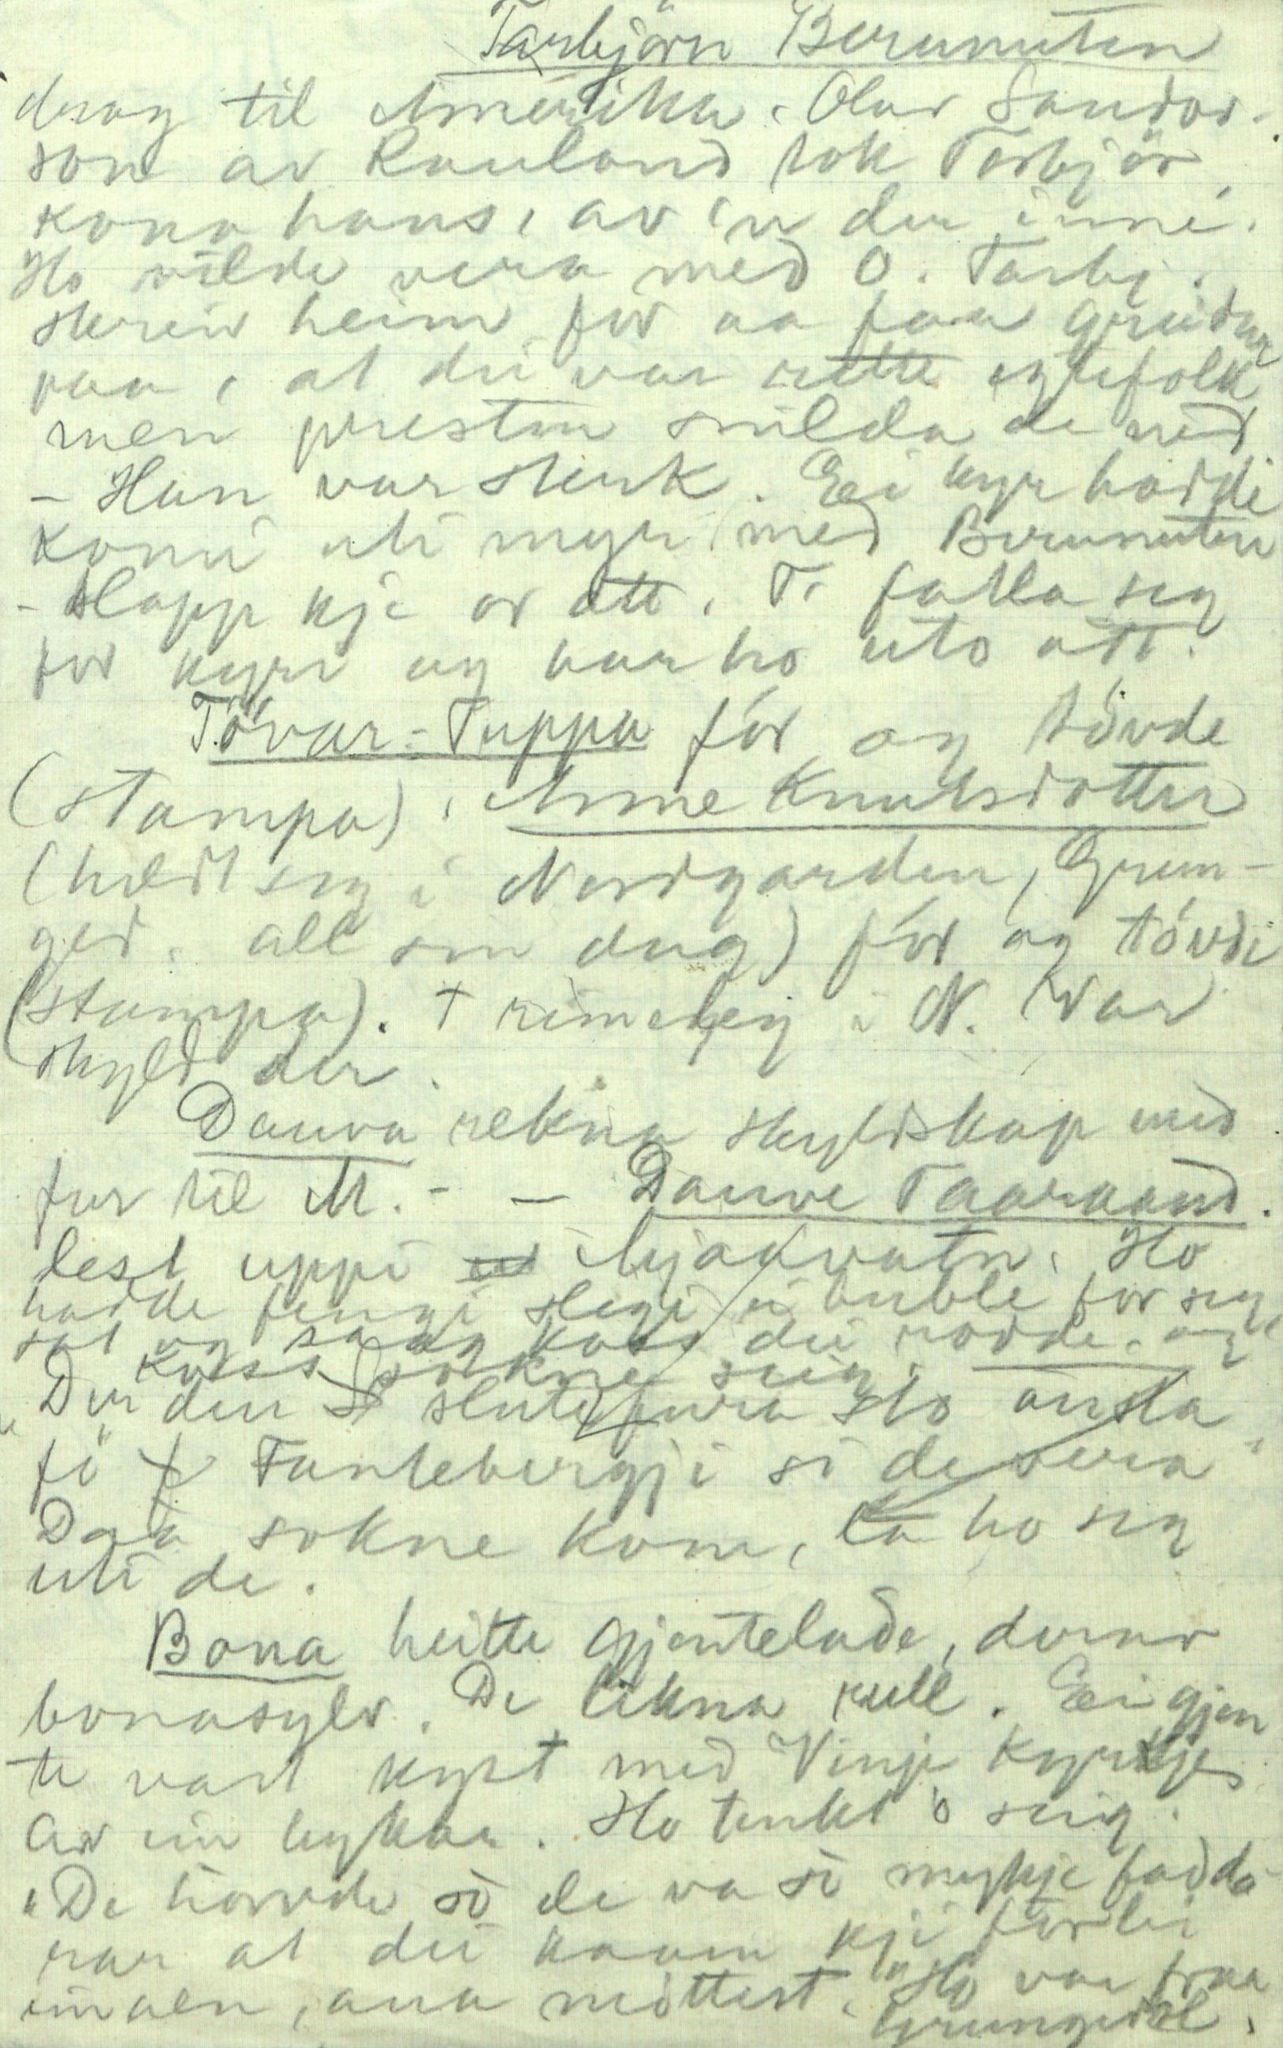 Tarbjörn Berunuten
drog til Amerika. Olav Sandor-
son av Rauland tok Torbjör,
kona hans, av 'n der inne.
Ho vilde vera med O. Tarbj.
skreiv heim för aa faa greidur
paa, at dei var rette egtefolk
men presten snilda de ned
- Han var sterk. Ei kyr hadde
komi uti myr med Berunuten
- slapp kje or ett. T. fatla seg
for kyri og bar ho uto ått.
Tövar-Tuppa fór og tövde
(stampa), Anne Knutsdotter
(heldt seg i Nordgarden, Grun-
ged. all sin dag) fór og tövde
(stampa). † rimeleg i N. Var
skyld der.
Dauva rekna skyldskap med
fur til M. - - Dauve Taaraand.
lest uppi i Mjaavatn. Ho
hadde fengi slegi ei buble for seg
sat og saag koss dei rodde og
koss sokne seig.
"Der den slutefura sto ausla
fö Fantebergji si de vera"
Daa sokne kom, la ho seg
uti de.
Bona heitte gjentelade, derav
bonasylv. De likna rull. Ei gjen
te vart kyst med Vinje kyrkje
av ein bykaa. Ho tenkt o seig.
"De hövde so de va so mykje fadda
rar at dei kaam kji förbi
einaen, ana mottest." Ho var fraa
Grungedal.